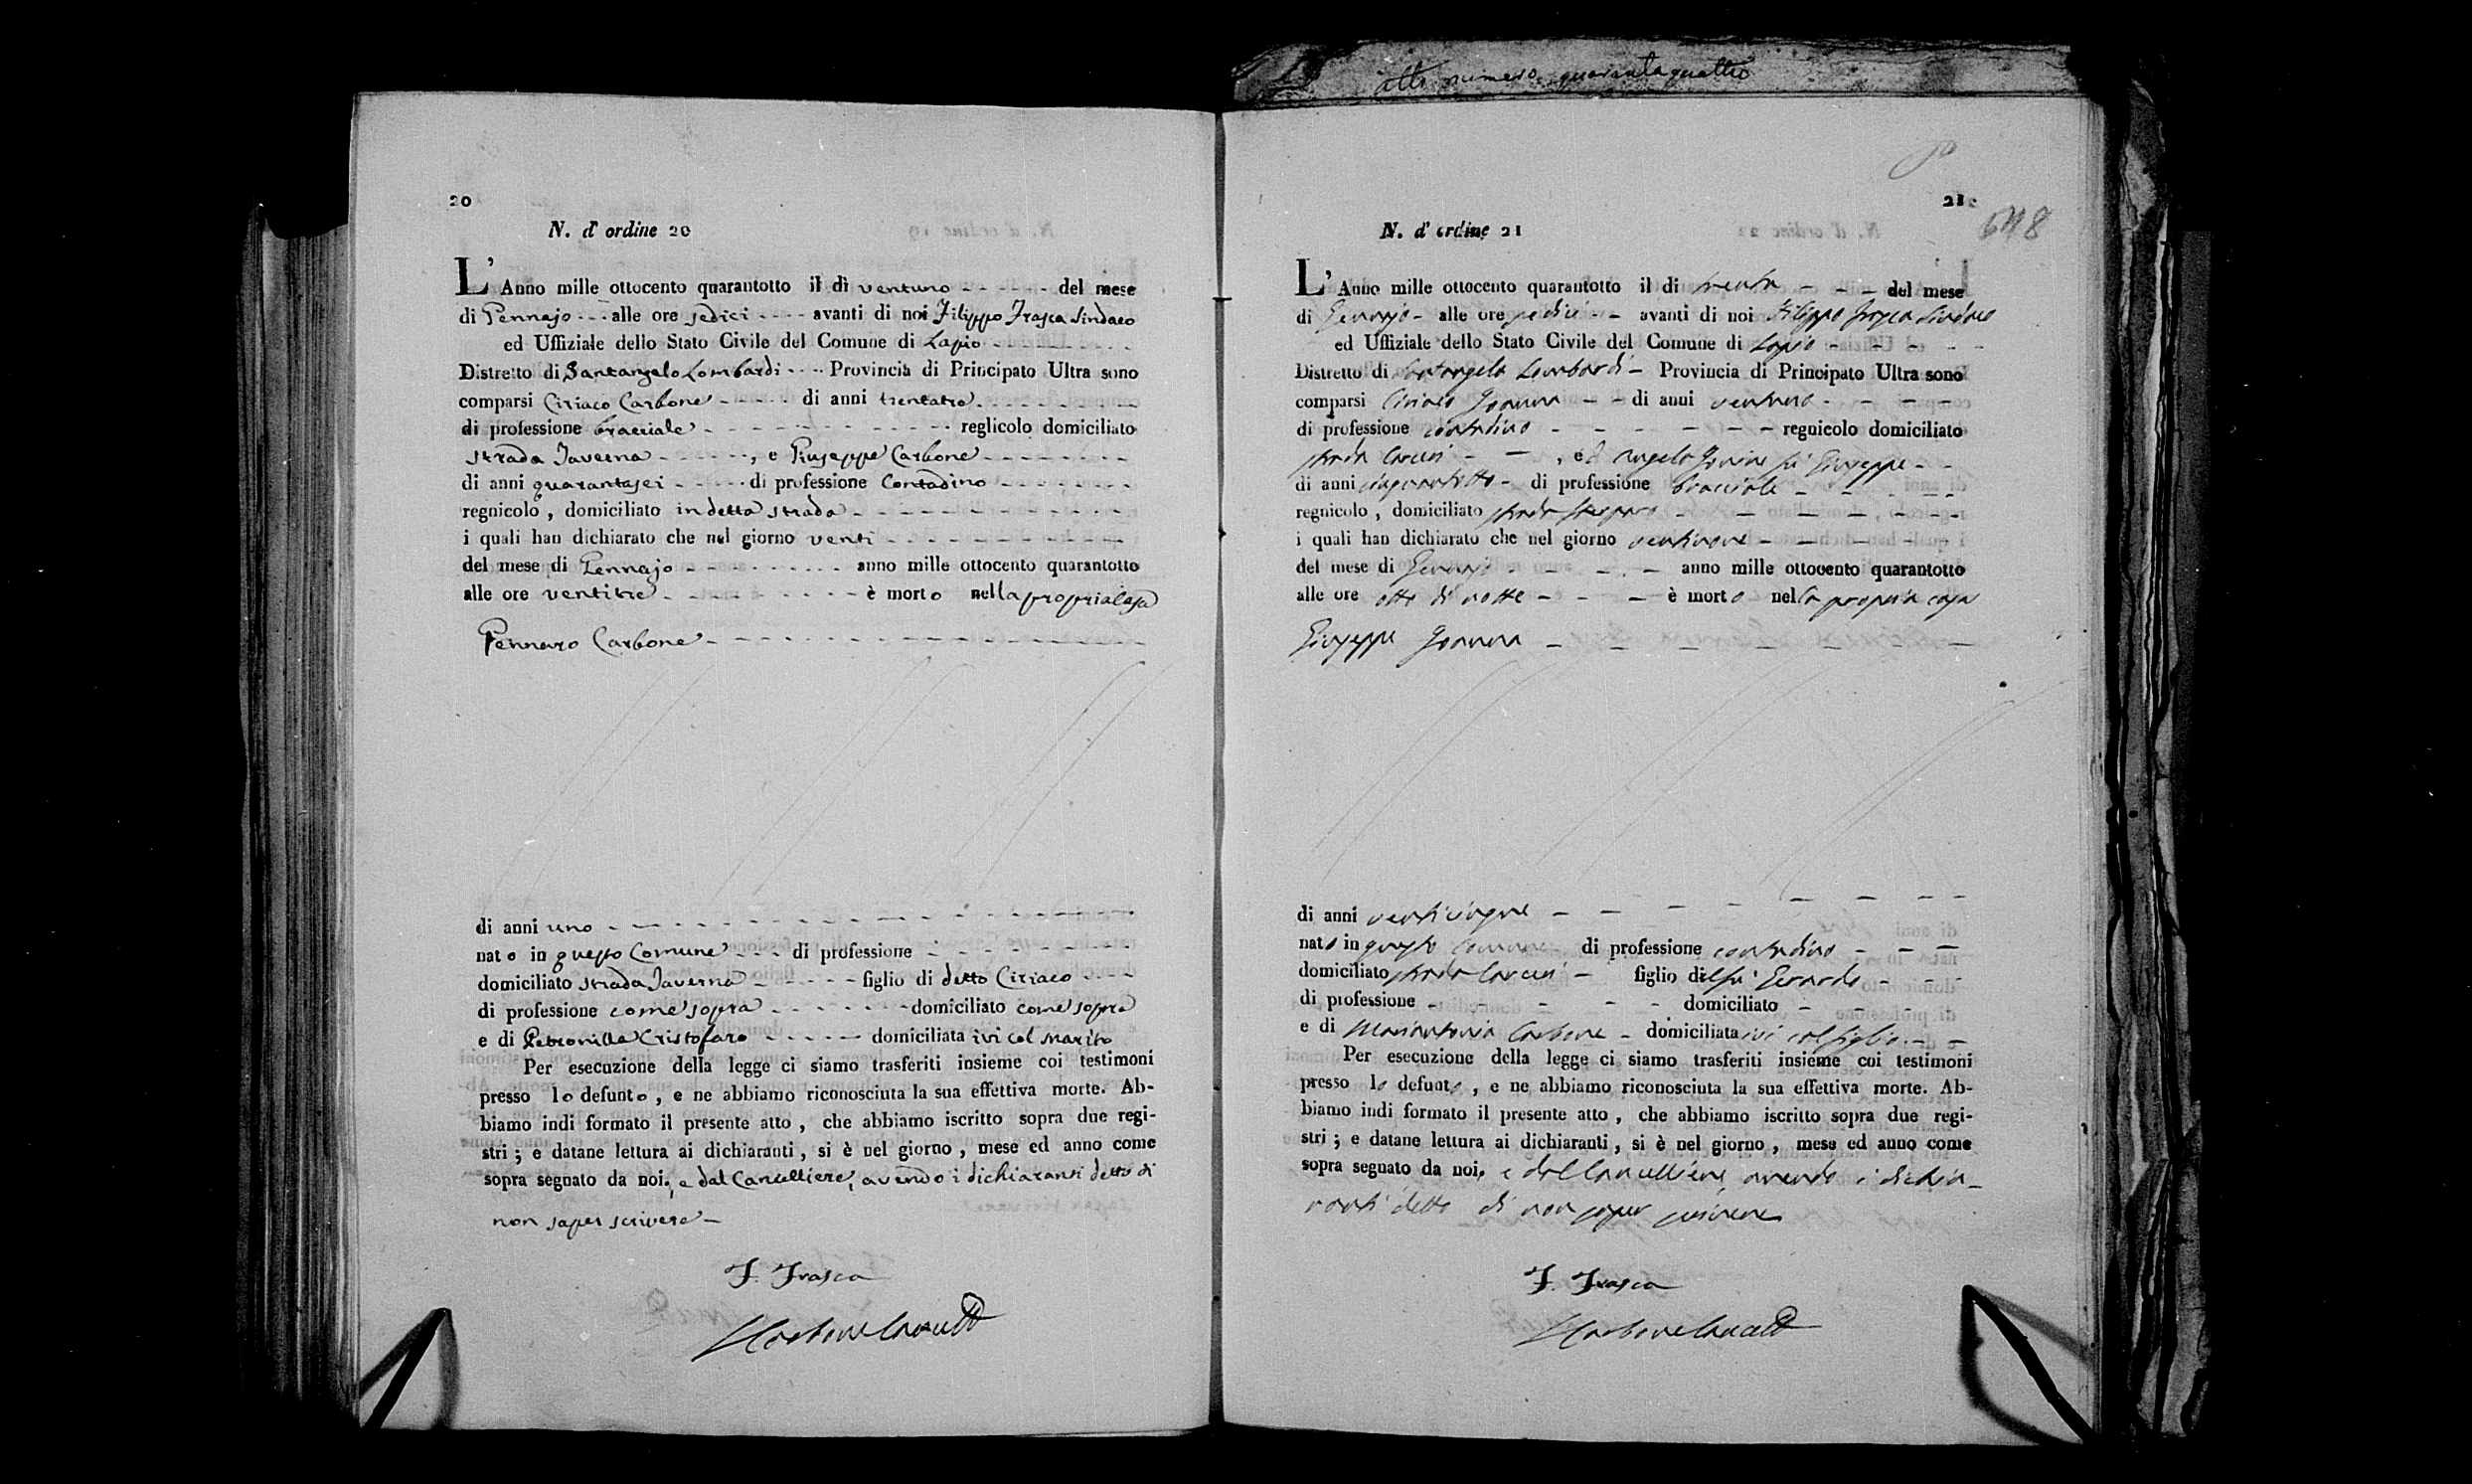 20
N. d' ordine 20
L' Anno mille ottocento quarantotto il dì ventuno - - - - - del mese
di Gennajo - - - alle ore sedici - - - - avanti di noi Filippo Frasca Sindaco
ed Uffiziale dello Stato Civile del Comune di Lapio - - - - - -
Distretto di Santangelo Lombardi - - - Provincia di Principato Ultra sono
comparsi Ciriaco Carbone - - - - di anni trentatre - - - - - -
di professione bracciale - - - - - - - - - reglicolo domiciliato
strada Taverna - - - - - , e Giuseppe Carbone - - - - - -
di anni quarantasei - - - - di professione Contadino - - - - - -
regnicolo , domiciliato in detta strada - - - - - - - - - -
i quali han dichiarato che nel giorno venti - - - - - - - - -
del mese di Gennajo - - - - - - - - anno mille ottocento quarantotto
alle ore ventitre - - - - - - - è morto nella propria Casa
Gennaro Carbone - - - - - - - - - - - - - -
di anni uno - - - - - - - - - - - - - - - -
nato in questo Comune - - - di professione - - - - - - -
domiciliato strada Taverna - - - - - figlio di detto Ciriaco - - -
di professione come sopra - - - - - - - domiciliato come sopra
e di Petronilla Cristofaro - - - - - domiciliata ivi col marito
Per esecuzione della legge ci siamo trasferiti insieme coi testimoni
presso lo defunto , e ne abbiamo riconosciuta la sua effettiva morte. Ab-
biamo indi formato il presente atto , che abbiamo iscritto sopra due regi-
stri ; e datane lettura ai dichiaranti , si è nel giorno , mese ed anno come
sopra segnato da noi, e dal Cancelliere, avendo i dichiaranti detto di
non saper scrivere -
F. Frasca
Carbone Cancell
atto numero quarantaquattro
21
648
N. d' ordine 21
L' Anno mille ottocento quarantotto il dì trenta - - - del mese
di Gennajo - alle ore sedici - - avanti di noi Filippo Frasca Sindaco
ed Uffiziale dello Stato Civile del Comune di Lapio - - - - -
Distretto di Santangelo Lombardi - Provincia di Principato Ultra sono
comparsi Ciriaco - - di anni ventuno - - - - -
di professione contadino - - - - - - regnicolo domiciliato
strada - - , ed Angelo fu Giuseppe - -
di anni cinquantotto - di professione bracciale - - - - -
regnicolo , domiciliato strada - - - - - -
i quali han dichiarato che nel giorno ventinove - - - - -
del mese di Gennajo - - - - anno mille ottocento quarantotto
alle ore otto di notte - - - è morto nella propria casa
Giuseppe - - - - - - -
di anni venticinque - - - - - - - -
nato in questo Comune - di professione contadino - - -
domiciliato strada - figlio del fu Gerardo - - -
di professione - - - - - domiciliato - - - -
e di Mariantonia Carbone - domiciliata ivi col figlio - -
Per esecuzione della legge ci siamo trasferiti insieme coi testimoni
presso lo defunto , e ne abbiamo riconosciuta la sua effettiva morte. Ab-
biamo indi formato il presente atto , che abbiamo iscritto sopra due regi-
stri ; e datane lettura ai dichiaranti , si è nel giorno , mese ed anno come
sopra segnato da noi, e dal Cancelliere, avendo i dichia-
ranti detto di non saper scrivere
F. Frasca
Carbone Cancell